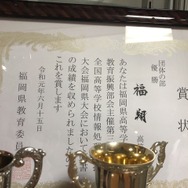 賞
状
団体の部
優勝
福
あなたは福岡県高等学
教育振興部会主催第
全国高等学校情報処
大会福岡県大会におい
の成績を収められました
これを賞します
令和元年六月十五日
福岡県教育委員